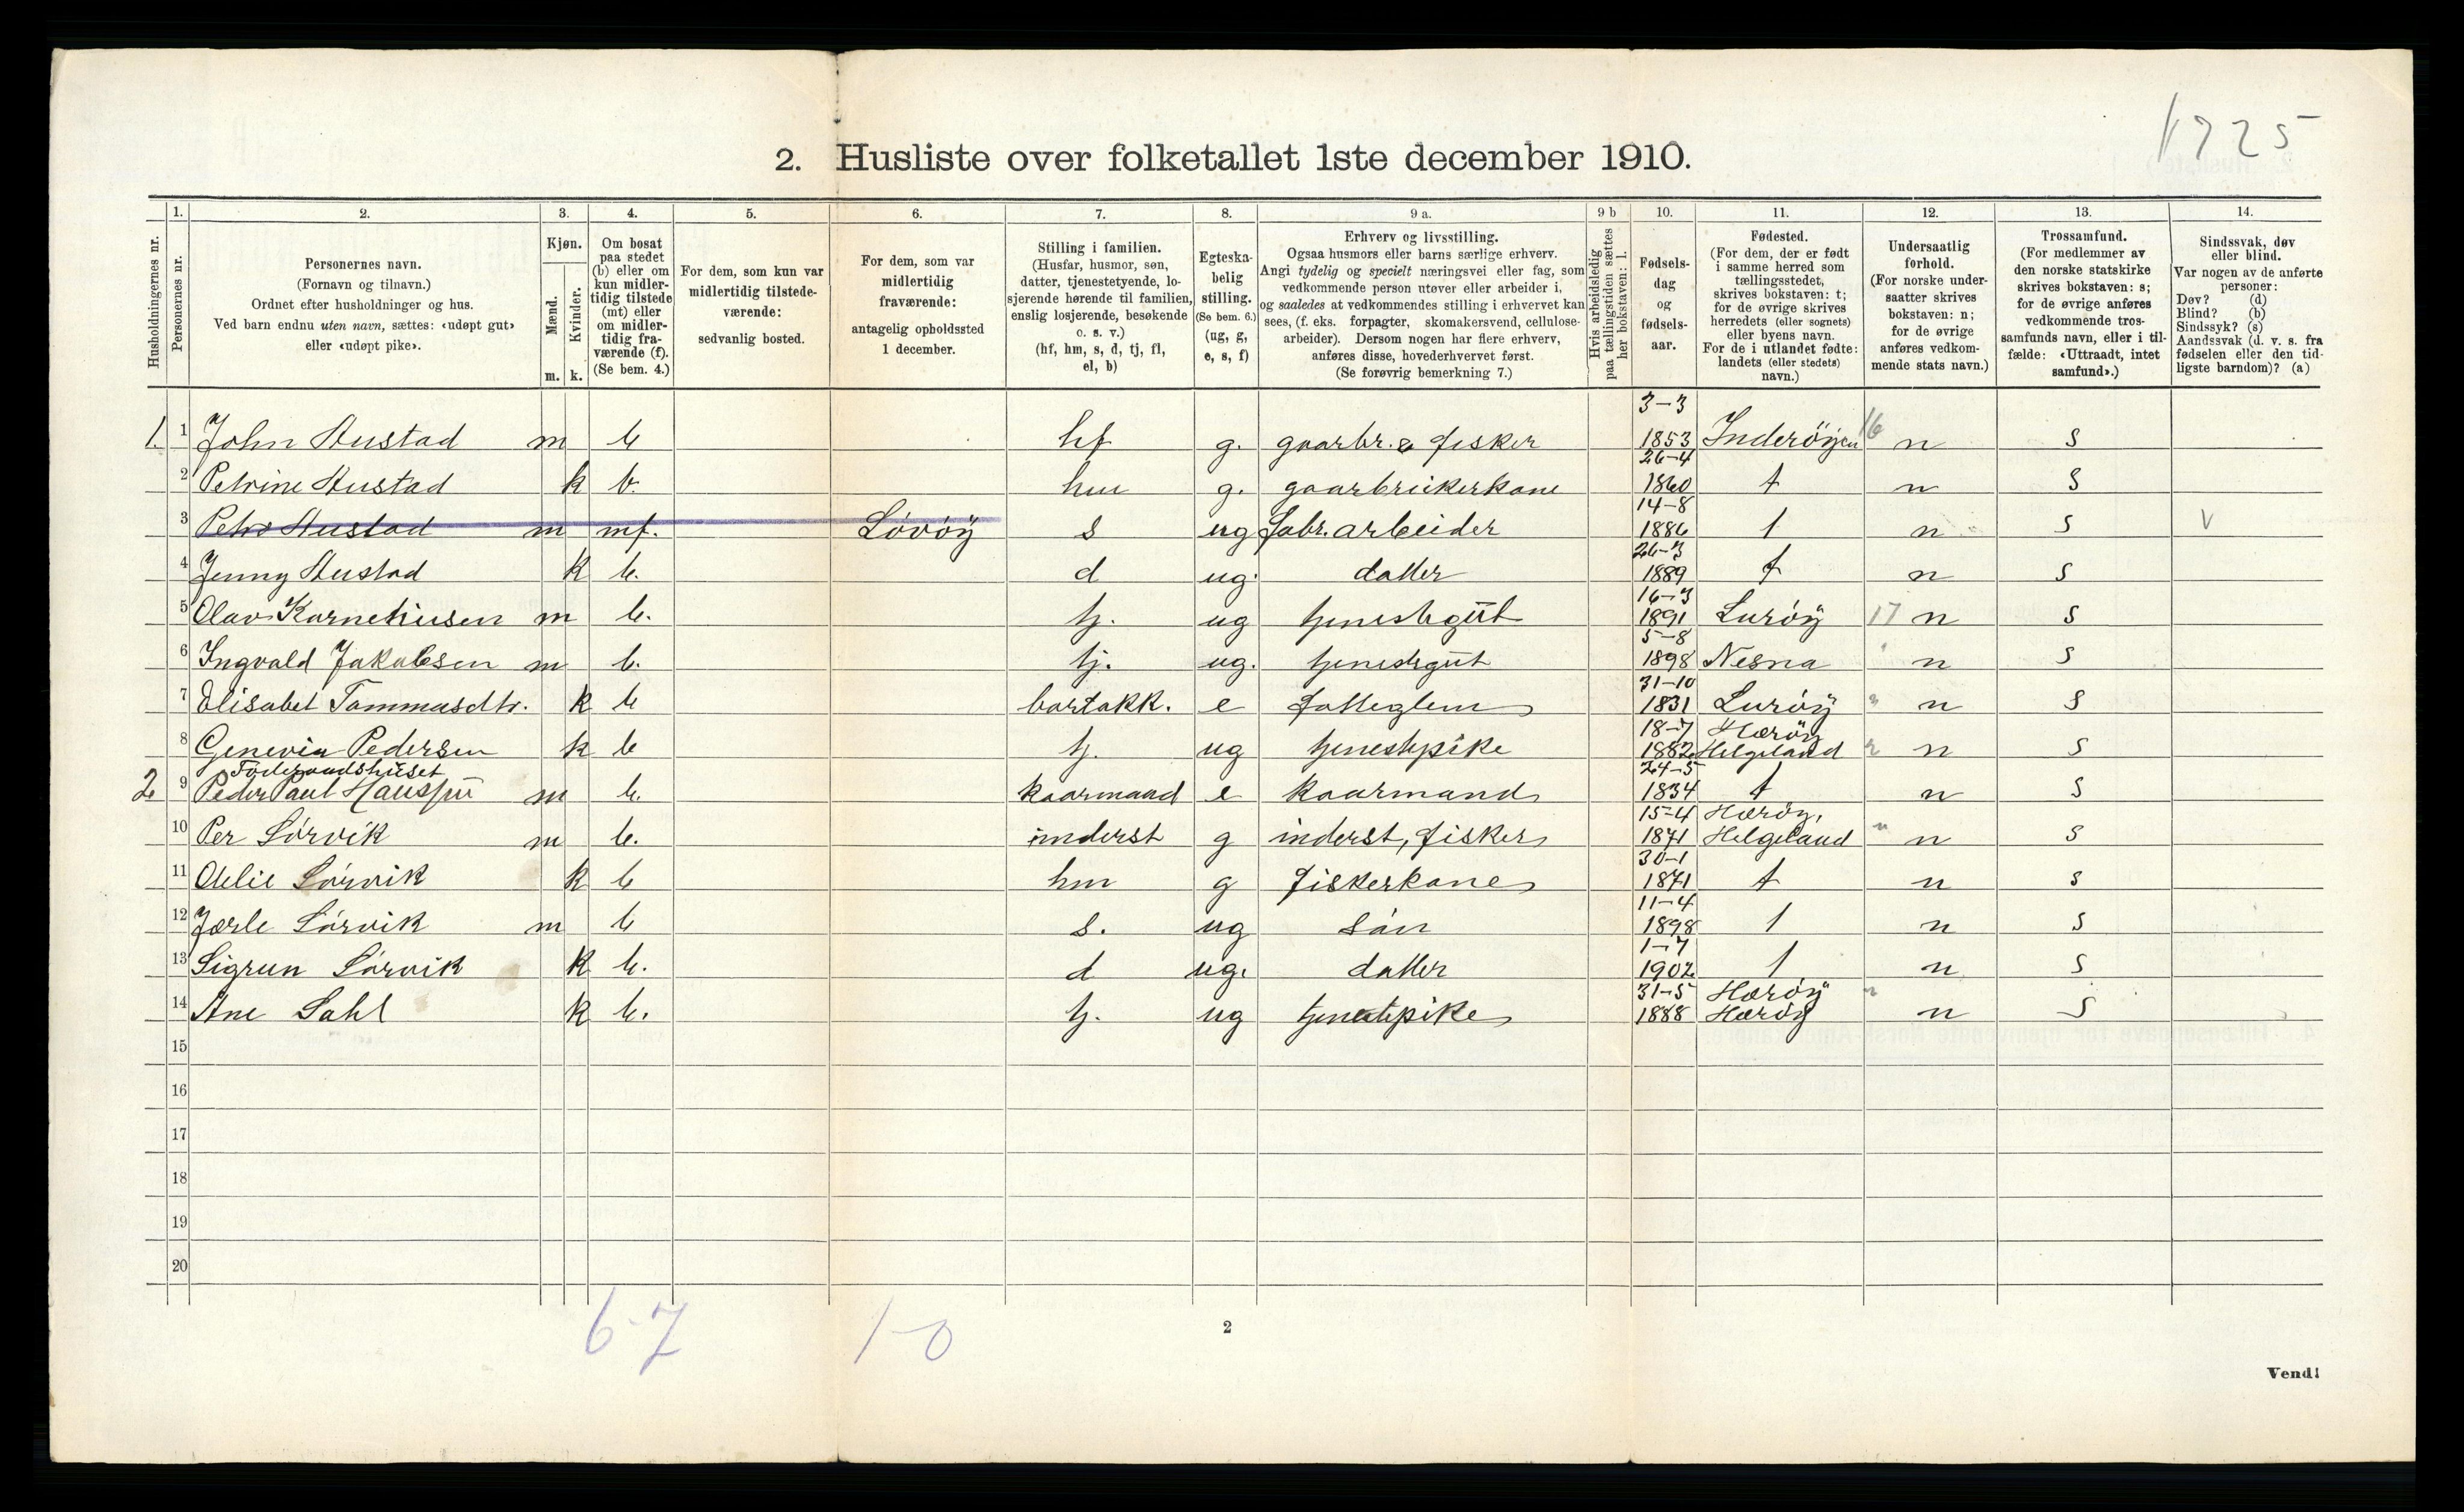 1725
2. Husliste over folketallet 1ste december 1910.
1. 2. 3. 4. 5. 6. 7. 8. 9 a. 9 b 10. 11. 12. 13. 14.
Husholdningernes nr.
Personernes nr.
Personernes navn.
(Fornavn og tilnavn.)
Ordnet efter husholdninger og hus.
Ved barn endnu uten navn, sættes: «udøpt gut»
eller «udøpt pike».
Kjøn.
Mænd.
Kvinder.
m. k.
Om bosat
paa stedet
(b) eller om
kun midler-
tidig tilstede
(mt) eller
om midler-
tidig fra-
værende (f).
(Se bem. 4.)
For dem, som kun var
midlertidig tilstede-
værende:
sedvanlig bosted.
For dem, som var
midlertidig
fraværende:
antagelig opholdssted
1 december.
Stilling i familien.
(Husfar, husmor, søn,
datter, tjenestetyende, lo-
sjerende hørende til familien,
enslig losjerende, besøkende
o. s. v.)
(hf, hm, s, d, tj, fl,
el, b)
Egteska-
belig
stilling.
(Se bem. 6.)
(ug, g,
e, s, f)
Erhverv og livsstilling.
Ogsaa husmors eller barns særlige erhverv.
Angi tydelig og specielt næringsvei eller fag, som
vedkommende person utøver eller arbeider i,
og saaledes at vedkommendes stilling i erhvervet kan
sees, (f. eks. forpagter, skomakersvend, cellulose-
arbeider). Dersom nogen har flere erhverv,
anføres disse, hovederhvervet først.
(Se forøvrig bemerkning 7.)
Hvis arbeidsledig
paa tællingstiden sættes
her bokstaven: l.
Fødsels-
dag
og
fødsels-
aar.
Fødested.
(For dem, der er født
i samme herred som
tællingsstedet,
skrives bokstaven: t;
for de øvrige skrives
herredets (eller sognets)
eller byens navn.
For de i utlandet fødte:
landets (eller stedets)
navn.)
Undersaatlig
forhold.
(For norske under-
saatter skrives
bokstaven: n;
for de øvrige
anføres vedkom-
mende stats navn.)
Trossamfund.
(For medlemmer av
den norske statskirke
skrives bokstaven: s;
for de øvrige anføres
vedkommende tros-
samfunds navn, eller i til-
fælde: «Uttraadt, intet
samfund».)
Sindssvak, døv
eller blind.
Var nogen av de anførte
personer:
Døv? (d)
Blind? (b)
Sindssyk? (s)
Aandssvak (d. v. s. fra
fødselen eller den tid-
ligste barndom)? (a)
1. 1 John Hustad m b hf g. gaarbr. & fisker 3-3 1853 Inderöyen 16 n s
2 Petrine Hustad k b. hm g. gaarbrukerkone 26-4 1860 t n s
3 Petro Hustad m mf. Lövöÿ s ug fabr. arbeider 14-8 1886 t n s v
4 Jenny Hustad k b. d ug. datter 26-3 1889 t n s
5 Olav Karneliusen m b. tj. ug tjenestegut 16-3 1891 Luröÿ 17 n s
6 Ingvald Jakobsen m b. tj. ug. tjenestegut 5-8 1898 Nesna " n s
7 Elisabet Tommasdtr. k b bortakk. e fatteglem 31-10 1831 Luröÿ " n s
8 Genevia Pedersen k b tj. ug tjenestepike 18-7 1882 Heröÿ Helgeland " n s
Föderaadshuset
2 9 Peder Paul Hanssen m b. kaarmand e kaarmand 24-5 1834 t n s
10 Per Sörvik m b. inderst g inderst, fisker 15-4 1871 Heröÿ, Helgeland " n s
11 Odelie Sörvik k b hm g fiskerkone 30-1 1871 t n s
12 Jarle Sörvik m b s. ug sön 11-4 1898 t n s
13 Sigrun Sörvik k b. d ug. datter 1-7 1902 t n s
14 Ane Dahl k b. tj. ug tjenestepike 31-5 1888 Heröÿ Heröÿ " n s
15
16
17
18
19
20
6-7 1-0
2
Vend!